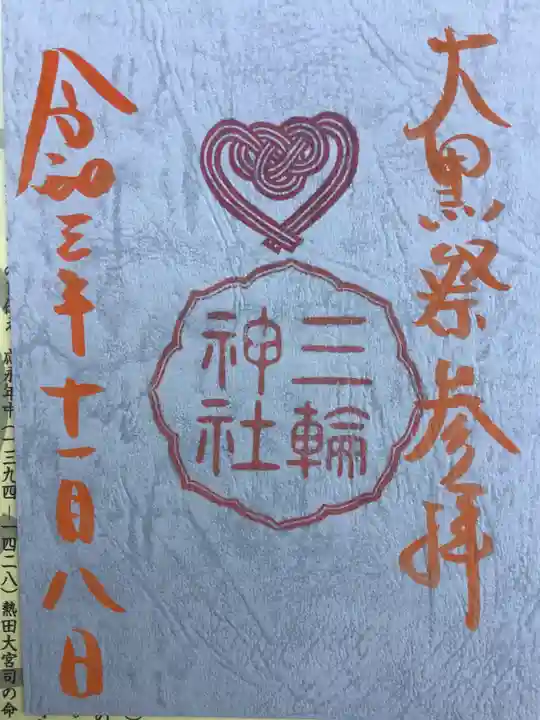 大黒祭参拝
三輪
神社
令和三年十一月八日
応永年中(一三九四－一四二八)熱田大宮司の命